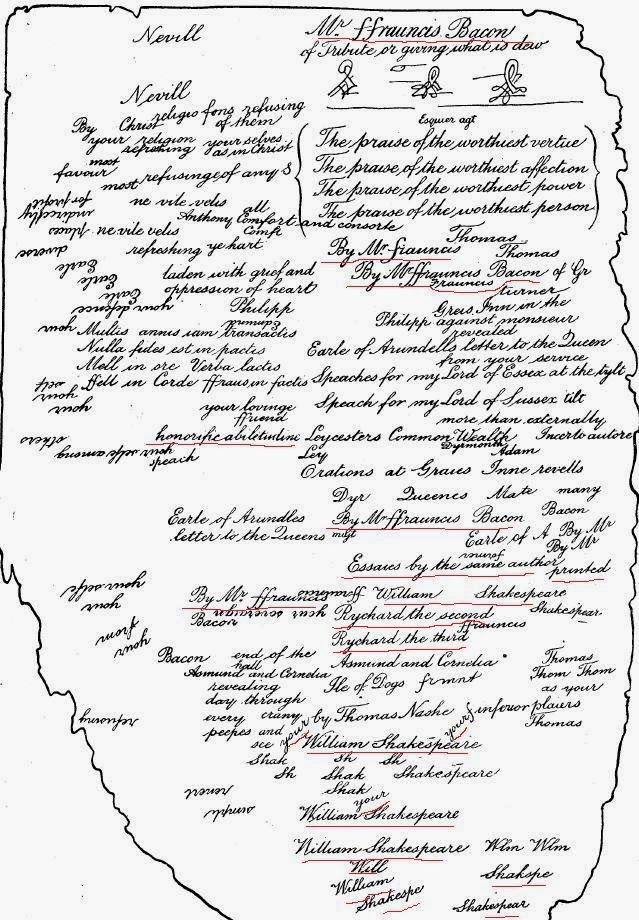 Nevill Mr ffrauncis Bacon
of Tribute or giving what is dew
Nevill
religio fons refusing Esquier agt
By Christ of them
your religion your selves The praise of the worthiest vertue
refreshing as in Christ
most
favour The praise of the worthiest affection
most refusinge of any S The praise of the worthiest power
for profit ne vile velis all The praise of the worthiest person
Anthony Comfort and consorte
place ne vile velis Comft Thomas
diverse refreshing ye hart By Mr ffrauncis Thomas
Earle laden with grief and By Mr ffrauncis Bacon of Gr
Earle oppression of heart Frauncis
Earle turner
your defence Philipp Greis Inn in the
your Edmund Philipp against monsieur
Multis annis iam transactis revealed
Nulla fides est in pactis Earle of Arundells letter to the Queen
Mell in ore Verba lactis from your service
self ffell in Corde ffraus in factis Speaches for my Lord of Essex at the tylt
your
your your lovinge Speach for my Lord of Sussex tilt
ffriend more than externally
others honorificabiletudini Leycesters Common Wealth Incerto autore
Dyrmonth
your selfe among Ley Adam
speach Orations at Graies Inne revells
Dyr Queenes Mate many
Earle of Arundles By Mr ffrauncis Bacon Bacon
letter to the Queens might Earle of A By Mr
By Mr
Essaies by the same author printed
your selfe
your By Mr ffrauncis William Shakespeare
Bacon your soveraign Rychard the second Shakespear
ffrauncis
from
your Rychard the third
Bacon end of the Asmund and Cornelia Thomas
hall
Asmund and Cornelia Ile of Dogs frmnt Thom Thom
revealing as your
day through
every crany by Thomas Nashe inferior plaiers
peepes and your your Thomas
see William Shakespeare
Shak Sh Sh
Sh Shak Shakespeare
Shak
your
William Shakespeare
William Shakespeare Wlm Wlm
Will Shakspe
William
Shakespe Shakespear